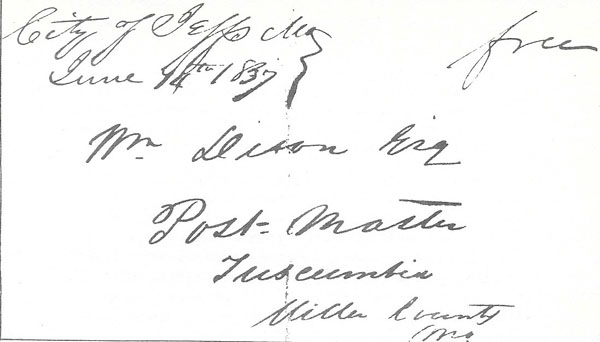 City of Jeffn Mo free
June 14th 1837
Wm Dixon Esq
Post-Master
Tuscumbia
Miller County
Mo